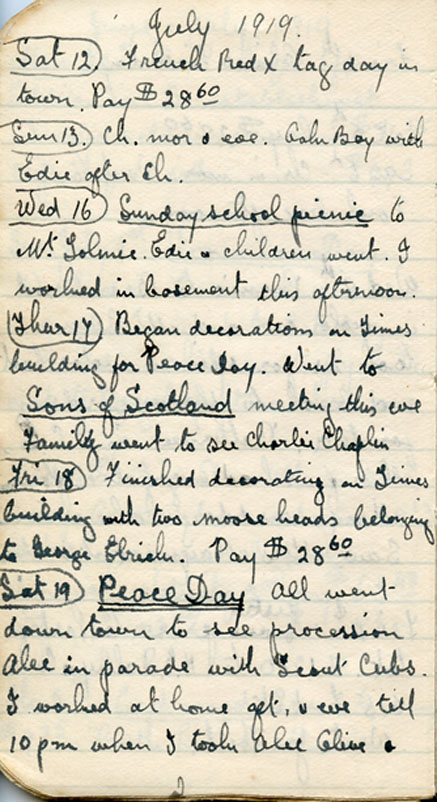 July 1919.
Sat 12) French Red X tag day in
town. Pay $28 60
Sun 13.) Ch. mor & eve. Oak Bay with
Edie after Ch.
Wed 16) Sunday school picnic to
Mt Tolmie. Edie & children went. I
worked in basement this afternoon.
Thur 17) Began decorations on Times
building for Peace Day. Went to
Sons of Scotland meeting this eve
Family went to see Charlie Chaplin
Fri 18) Finished decorating on Times
building with two moose heads belonging
to George. Pay $28 60
Sat 19) Peace Day All went
down town to see procession
Alec in parade with Scout Cubs.
I worked at home aft, & eve till
10 pm when I took Alec Olive &